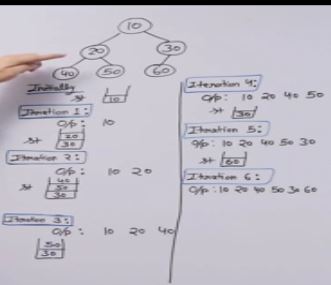 10
20 30
40 50 60
Initially
st 10
Iteration 1:
O/p: 10
st 20
30
Iteration 2:
O/p: 10 20
st 40
50
30
Iteration 3:
O/p: 10 20 40
50
30
Iteration 4:
O/p: 10 20 40 50
st 30
Iteration 5:
O/p: 10 20 40 50 30
st 60
Iteration 6:
O/p: 10 20 40 50 30 60